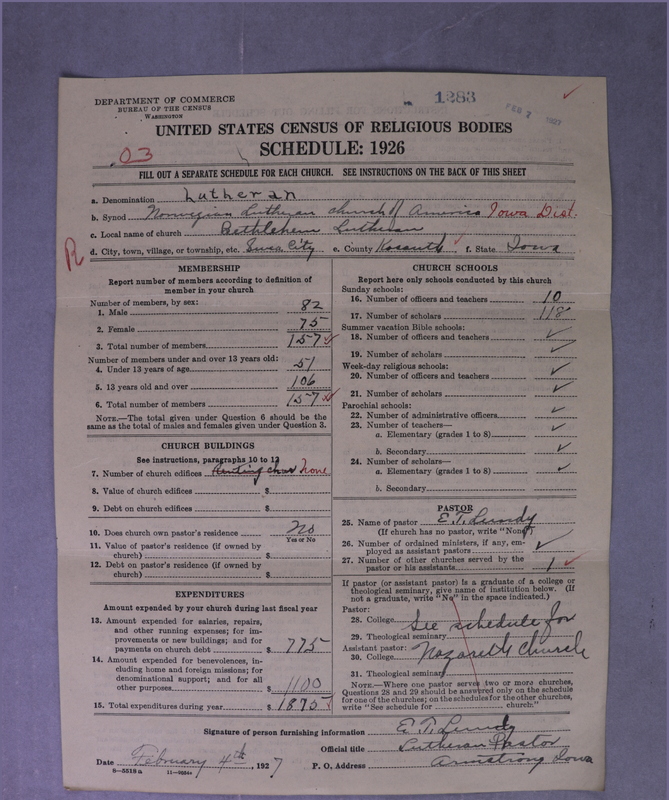 DEPARTMENT OF COMMERCE
BUREAU OF THE CENSUS
WASHINGTON
1283
FEB 7 1927
UNITED STATES CENSUS OF RELIGIOUS BODIES
SCHEDULE: 1926
.03
FILL OUT A SEPARATE SCHEDULE FOR EACH CHURCH. SEE INSTRUCTIONS ON THE BACK OF THIS SHEET
a. Denomination Lutheran
b. Synod Norwegian Lutheran church of America Iowa Dist.
c. Local name of church Bethlehem Lutheran
R d. City, town, village, or township, etc. Swea City e. County Kossuth f. State Iowa
MEMBERSHIP
Report number of members according to definition of
member in your church
Number of members, by sex:
1. Male 82
2. Female 75
3. Total number of members 157
Number of members under and over 13 years old:
4. Under 13 years of age 51
5. 13 years old and over 106
6. Total number of members 157
NOTE.—The total given under Question 6 should be the
same as the total of males and females given under Question 3.
CHURCH BUILDINGS
See instructions, paragraphs 10 to 12
7. Number of church edifices none
8. Value of church edifices $
9. Debt on church edifices $
10. Does church own pastor's residence No
Yes or No
11. Value of pastor's residence (if owned by
church) $
12. Debt on pastor's residence (if owned by
church) $
EXPENDITURES
Amount expended by your church during last fiscal year
13. Amount expended for salaries, repairs,
and other running expenses; for im-
provements or new buildings; and for
payments on church debt $ 775
14. Amount expended for benevolences, in-
cluding home and foreign missions; for
denominational support; and for all
other purposes $ 1100
15. Total expenditures during year $ 1875
CHURCH SCHOOLS
Report here only schools conducted by this church
Sunday schools:
16. Number of officers and teachers 10
17. Number of scholars 118
Summer vacation Bible schools:
18. Number of officers and teachers ✓
19. Number of scholars ✓
Week-day religious schools:
20. Number of officers and teachers ✓
21. Number of scholars ✓
Parochial schools:
22. Number of administrative officers ✓
23. Number of teachers—
a. Elementary (grades 1 to 8) ✓
b. Secondary ✓
24. Number of scholars—
a. Elementary (grades 1 to 8) ✓
b. Secondary
PASTOR
25. Name of pastor E. T. Lundy
(If church has no pastor, write "None")
26. Number of ordained ministers, if any, em-
ployed as assistant pastors ✓
27. Number of other churches served by the
pastor or his assistants 1
If pastor (or assistant pastor) is a graduate of a college or
theological seminary, give name of institution below. (If
not a graduate, write "No" in the space indicated.)
Pastor:
28. College See schedule for
29. Theological seminary
Assistant pastor:
30. College Nazareth Church
31. Theological seminary
NOTE.—Where one pastor serves two or more churches,
Questions 28 and 29 should be answered only on the schedule
for one of the churches; on the schedules for the other churches,
write "See schedule for church."
Signature of person furnishing information E. T. Lundy
Official title Lutheran Pastor
Date February 4th, 1927 P. O. Address Armstrong Iowa
8—5518a 11—9554